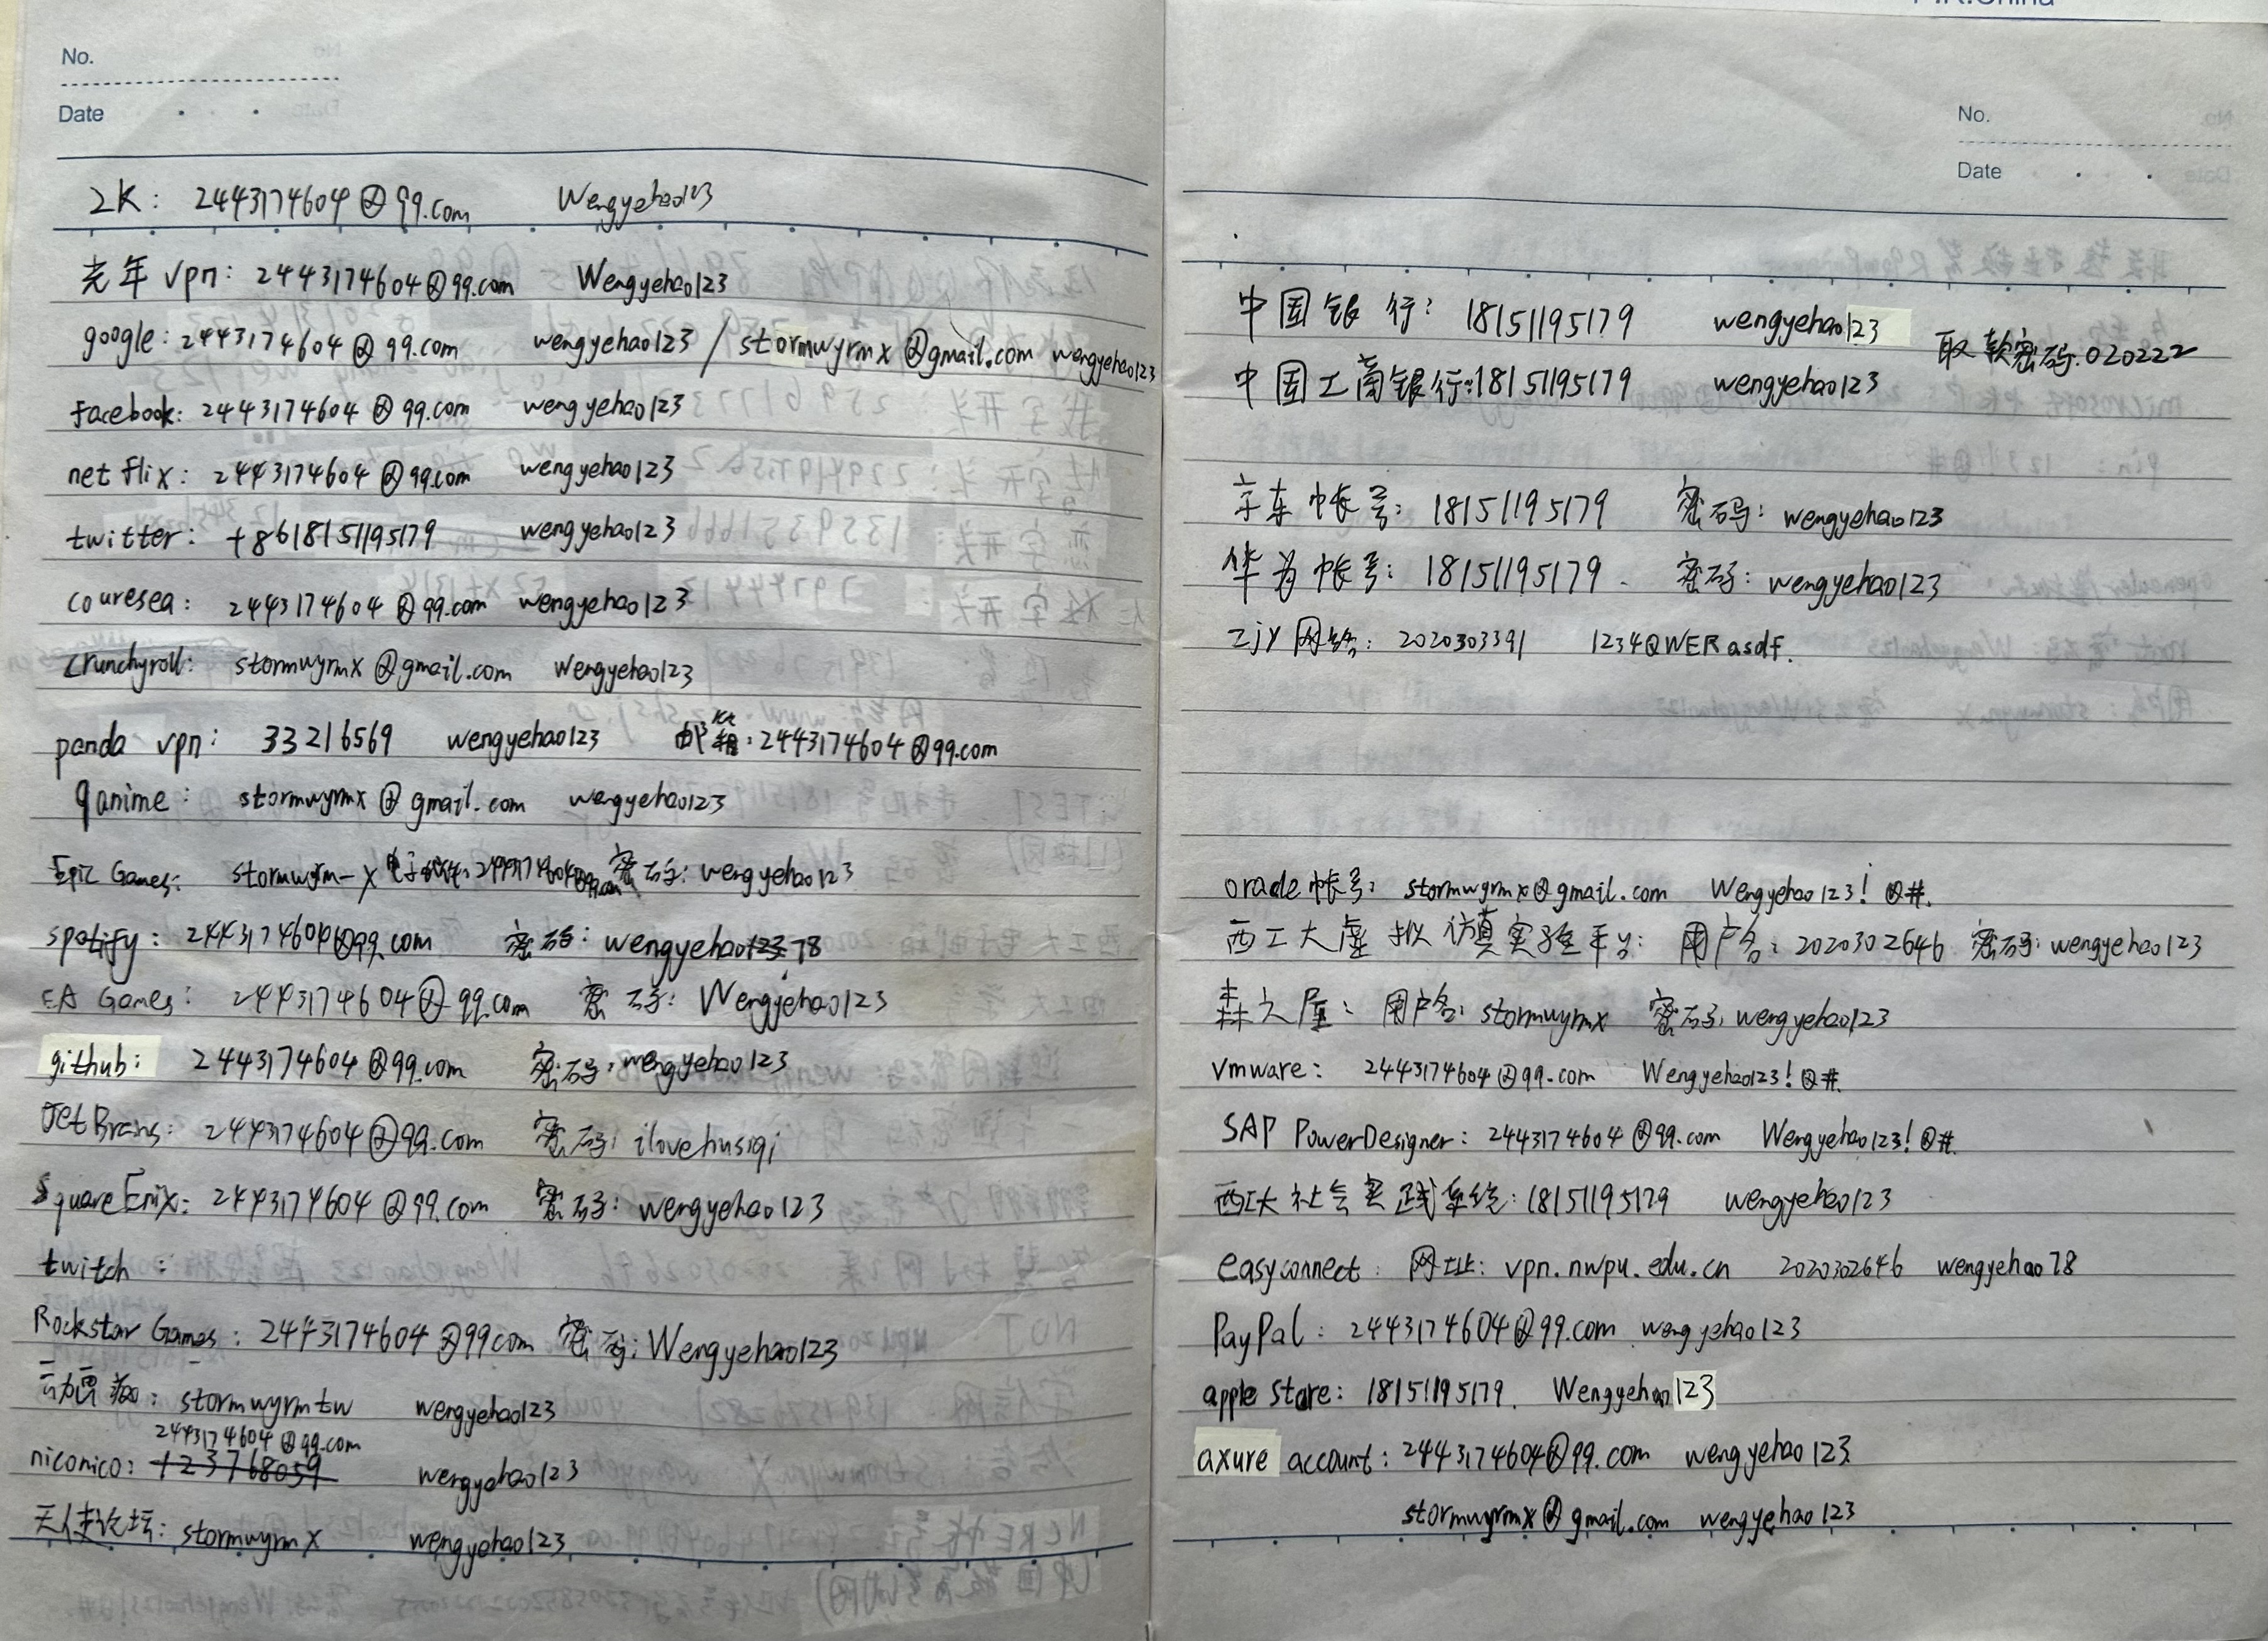 P.R.China
No.
Date
2K: 2443174604@qq.com Wengyehao123
光年 vpn: 2443174604@qq.com Wengyehao123
google: 2443174604@qq.com wengyehao123 / stormwyrmx@gmail.com wengyehao123
Facebook: 2443174604@qq.com wengyehao123
netflix: 2443174604@qq.com wengyehao123
twitter: +8618151195179 wengyehao123
couresea: 2443174604@qq.com wengyehao123
crunchyroll: stormwyrmx@gmail.com Wengyehao123
panda vpn: 33216569 wengyehao123 邮箱:2443174604@qq.com
qanime: stormwyrmx@gmail.com wengyehao123
Epic Games: stormwyrm-x 密码: wengyehao123
spotify: 2443174604@qq.com 密码: wengyehao78
EA Games: 2443174604@qq.com 密码: Wengyehao123
github: 2443174604@qq.com 密码: wengyehao123
JetBrains: 2443174604@qq.com 密码: ilovehusiqi
Square Enix: 2443174604@qq.com 密码: wengyehao123
twitch:
Rockstar Games: 2443174604@qqcom 密码: Wengyehao123
stormwyrmtw wengyehao123
2443174604@qq.com
niconico: +23768059 wengyehao123
天使论坛: stormwyrmx wengyehao123
No.
Date
中国银行: 18151195179 wengyehao123 取款密码.020222
中国工商银行:18151195179 wengyehao123
京东帐号: 18151195179 密码: wengyehao123
华为帐号: 18151195179. 密码: wengyehao123
zjy 网络: 2020303391 1234QWERasdf.
oracle帐号: stormwyrmx@gmail.com Wengyehao123!@#.
西工大虚拟仿真实验平台: 用户名: 2020302646 密码: wengyehao123
森之屋: 用户名: stormwyrmx 密码: wengyehao123
vmware: 2443174604@qq.com Wengyehao123!@#.
SAP PowerDesigner: 2443174604@qq.com Wengyehao123!@#.
西工大社会实践系统: 18151195179 wengyehao123
easyconnect: 网址: vpn.nwpu.edu.cn 2020302646 wengyehao78
PayPal: 2443174604@qq.com wengyehao123
apple store: 18151195179. Wengyehao123
axure account: 2443174604@qq.com wengyehao123
stormwyrmx@gmail.com wengyehao123